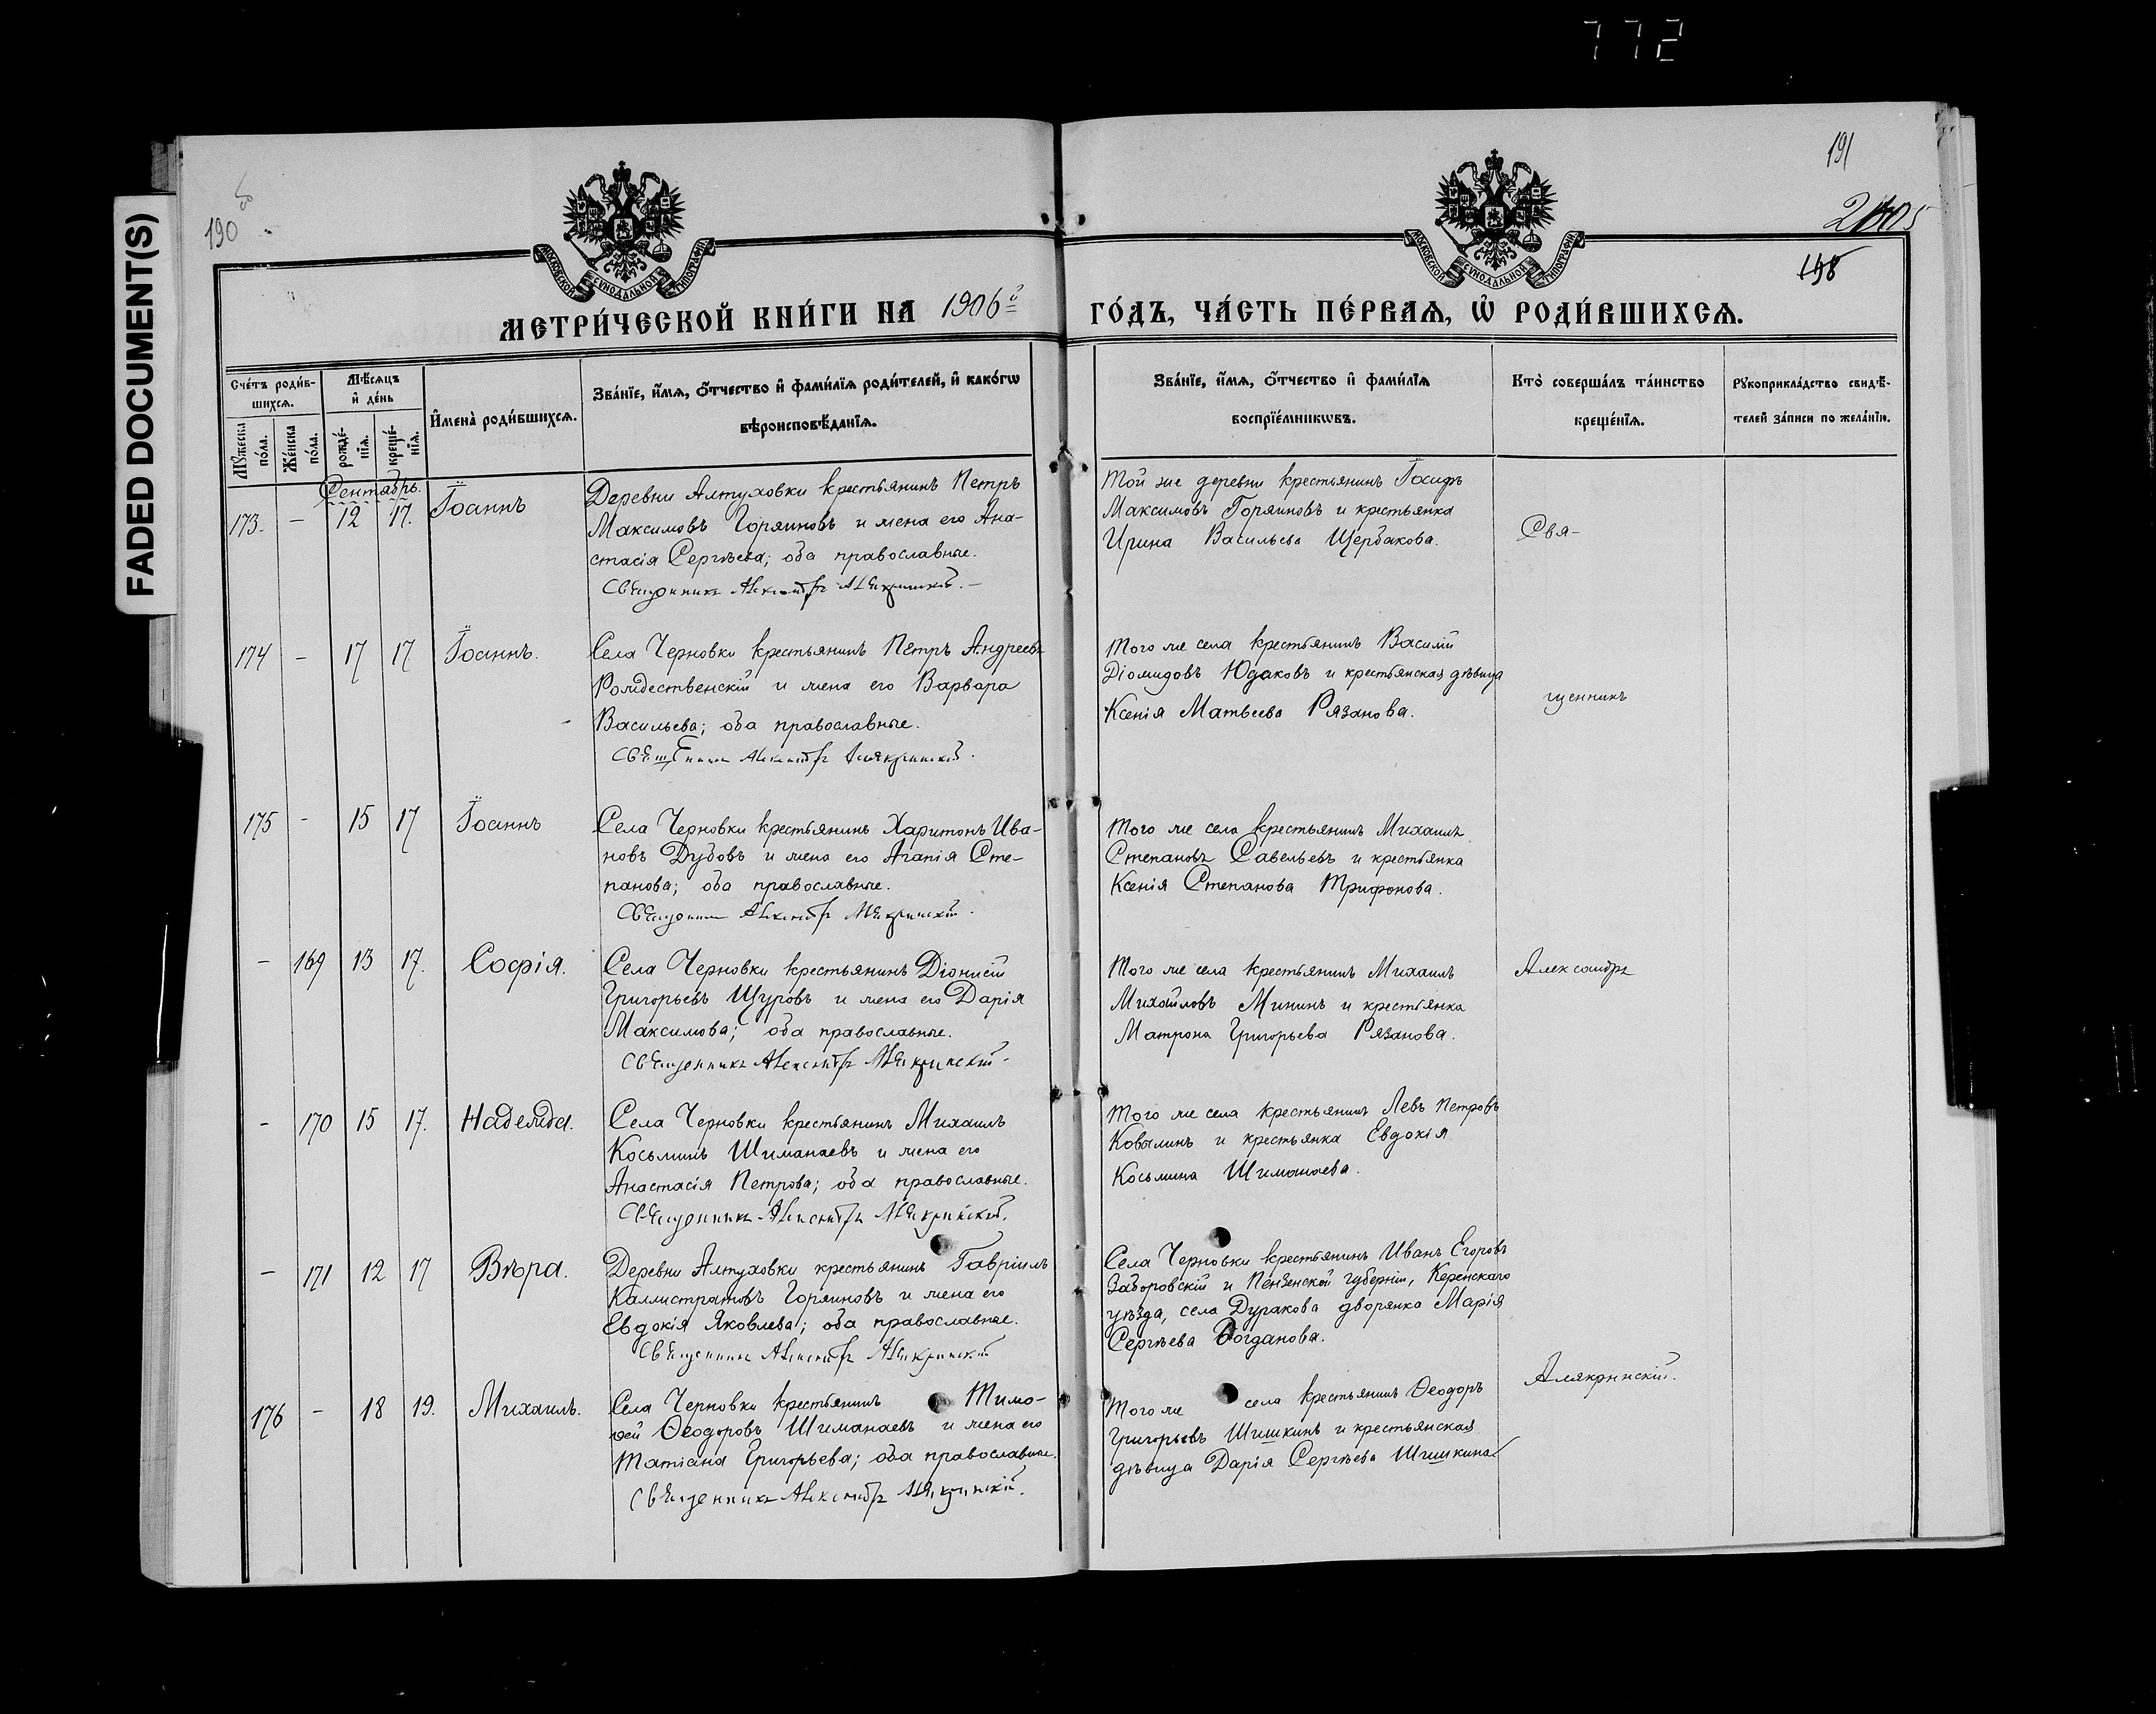 772
FADED DOCUMENT(S)
190
191
198
МОСКОВСКОЙ СѴНОДАЛЬНОЙ ТИПОГРАФІИ
МОСКОВСКОЙ СѴНОДАЛЬНОЙ ТИПОГРАФІИ
МЕТРИ́ЧЕСКОЙ КНИ́ГИ НА 1906й ГО́ДЪ, ЧА́СТЬ ПЕ́РВАѦ, Ѡ҆ РОДИ́ВШИХСѦ.
Сче́тъ роди́в-
шихсѧ.
Мꙋ́жеска по́ла.
Же́нска по́ла.
Мѣ́сѧцъ
и҆ де́нь
рожде́-
нїѧ.
креще́-
нїѧ.
И҆мена̀ роди́вшихсѧ.
Зва́нїе, и҆́мѧ, ѻ҆́тчество и҆ фами́лїѧ роди́телей, и҆ како́гѡ
вѣроисповѣ́данїѧ.
Зва́нїе, и҆́мѧ, ѻ҆́тчество и҆ фами́лїѧ
воспрїе́мникѡвъ.
Кто̀ соверша́лъ та́инство
креще́нїѧ.
Рꙋкоприкла́дство свидѣ́-
телей за́писи по жела́нїю.
Сентябрь.
173. – 12 17. Іоаннъ
Деревни Алтуховки крестьянинъ Петръ
Максимовъ Горяиновъ и жена его Ана-
стасія Сергѣева; оба православные.
Священникъ Александръ Алякринскій.
Той же деревни крестьянинъ Іосифъ
Максимовъ Горяиновъ и крестьянка
Ирина Васильева Щербакова.
Свя-
174 – 17 17 Іоаннъ.
Села Черновки крестьянинъ Петръ Андреевъ
Рождественскій и жена его Варвара
Васильева; оба православные.
Священникъ Александръ Алякринскій.
Того же села крестьянинъ Василій
Діомидовъ Юдаковъ и крестьянская дѣвица
Ксенія Матвеева Рязанова.
щенникъ
175 – 15 17 Іоаннъ
Села Черновки крестьянинъ Харитонъ Ива-
новъ Дубовъ и жена его Агапія Сте-
панова; оба православные.
Священникъ Александръ Алякринскій.
Того же села крестьянинъ Михаилъ
Степановъ Савельевъ и крестьянка
Ксенія Степанова Трифонова.
– 169 13 17. Софія.
Села Черновки крестьянинъ Діонисій
Григорьевъ Щуровъ и жена его Дарія
Максимова; оба православные.
Священникъ Александръ Алякринскій.
Того же села крестьянинъ Михаилъ
Михайловъ Мининъ и крестьянка
Матрона Григорьева Рязанова.
Александръ
– 170 15 17. Надежда.
Села Черновки крестьянинъ Михаилъ
Косьминъ Шиманаевъ и жена его
Анастасія Петрова; оба православные.
Священникъ Александръ Алякринскій.
Того же села крестьянинъ Левъ Петровъ
Ковалинъ и крестьянка Евдокія
Косьмина Шиманаева.
– 171 12 17 Вѣра.
Деревни Алтуховки крестьянинъ Гавріилъ
Каллистратовъ Горяиновъ и жена его
Евдокія Яковлева; оба православные.
Священникъ Александръ Алякринскій
Села Черновки крестьянинъ Иванъ Егоровъ
Заборовскій и Пензенской губерніи, Керенскаго
уѣзда, села Дуракова дворянка Марія
Сергѣева Богданова.
Алякринскій.
176 – 18 19. Михаилъ.
Села Черновки крестьянинъ Тимо-
ѳей Ѳеодоровъ Шиманаевъ и жена его
Татіана Григорьева; оба православные.
Священникъ Александръ Алякринскій.
Того же села крестьянинъ Ѳеодоръ
Григорьевъ Шишкинъ и крестьянская
дѣвица Дарія Сергѣева Шишкина